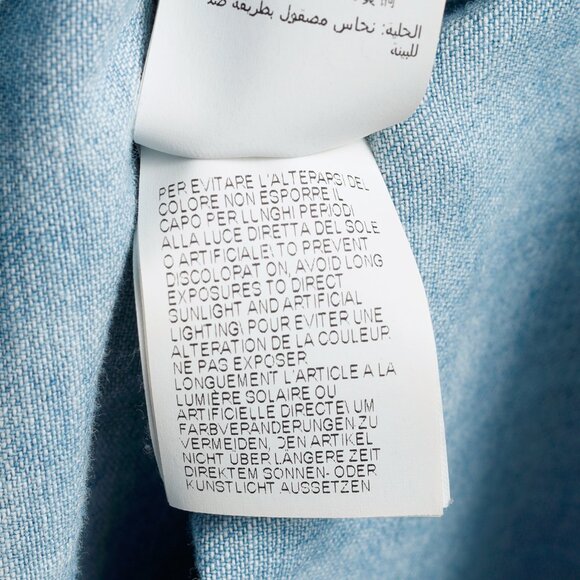 الحلية: نحاس مصقول بطريقة ضد
للبيئة
PER EVITARE L'ALTERARSI DEL
COLORE NON ESPORRE IL
CAPO PER LUNGHI PERIODI
ALLA LUCE DIRETTA DEL SOLE
O ARTIFICIALE\ TO PREVENT
DISCOLORATION, AVOID LONG
EXPOSURES TO DIRECT
SUNLIGHT AND ARTIFICIAL
LIGHTING\ POUR EVITER UNE
ALTERATION DE LA COULEUR,
NE PAS EXPOSER
LONGUEMENT L'ARTICLE A LA
LUMIÈRE SOLAIRE OU
ARTIFICIELLE DIRECTE\ UM
FARBVERÄNDERUNGEN ZU
VERMEIDEN, DEN ARTIKEL
NICHT ÜBER LÄNGERE ZEIT
DIREKTEM SONNEN- ODER
KUNSTLICHT AUSSETZEN